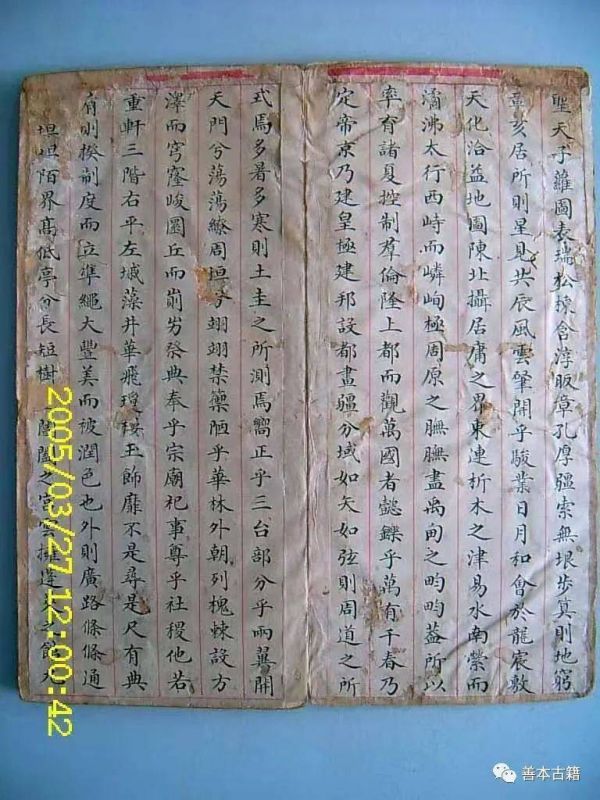 聖天子蘿圖表瑞松棟含淳昄章孔厚疆索無垠步算則地窮
章亥居所則星見共辰風雲肇開乎駿業日月和會於龍宸敷
天化洽益地圖陳北攝居庸之界東連析木之津易水南縈而
潏沸太行西峙而嶙峋極周原之膴膴盡禹甸之畇畇蓋所以
率育諸夏控制羣倫隆上都而觀萬國者懿鑠乎萬有千春乃
定帝京乃建皇極建邦設都畫疆分域如矢如弦則周道之所
式焉多暑多寒則土圭之所測焉嚮正乎三台部分乎兩翼開
天門兮蕩蕩繚周垣兮翊翊禁籞陋乎華林外朝列槐棘設方
澤而穹窿峻圜丘而崱屴祭典奉乎宗廟祀事尊乎社稷他若
重軒三階右平左墄藻井華飛玉飾靡不是尋是尺有典
有則揆制度而立準繩大豐美而被潤色也外則廣路條條通
堤坦陌界高低亭分長短樹閶闔之宮雲擁之館
2005/03/27 12:00:42
善本古籍